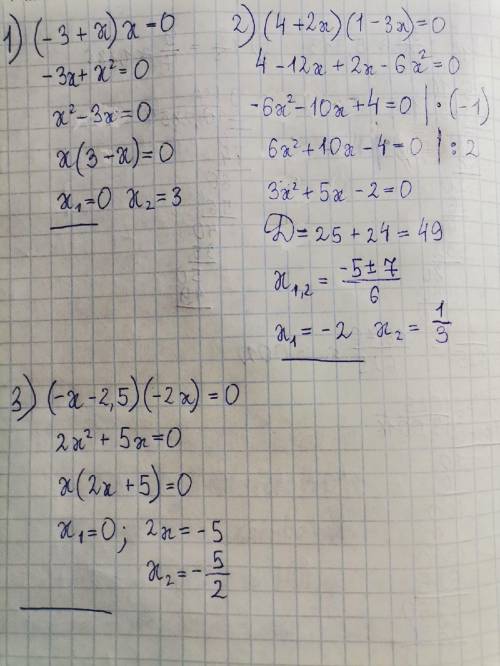 1) (-3+x)x=0
-3x+x²=0
x²-3x=0
x(3-x)=0
x₁=0 x₂=3
2) (4+2x)(1-3x)=0
4-12x+2x-6x²=0
-6x²-10x+4=0 |·(-1)
6x²+10x-4=0 |:2
3x²+5x-2=0
D=25+24=49
x₁,₂=(-5±7)/6
x₁=-2 x₂=1/3
3) (-x-2,5)(-2x)=0
2x²+5x=0
x(2x+5)=0
x₁=0; 2x=-5
x₂=-5/2